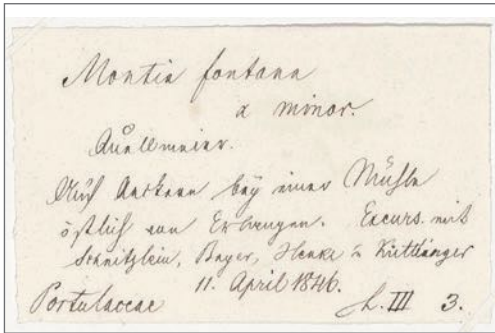 Montia fontana
α minor.
Quellmeier.
Auf Aeckern bey einer Mühle
östlich von Erlangen. Excurs. mit
Schnitzlein, Beyer, Henke & Küttlinger
11. April 1846.
Portulaceae L. III 3.